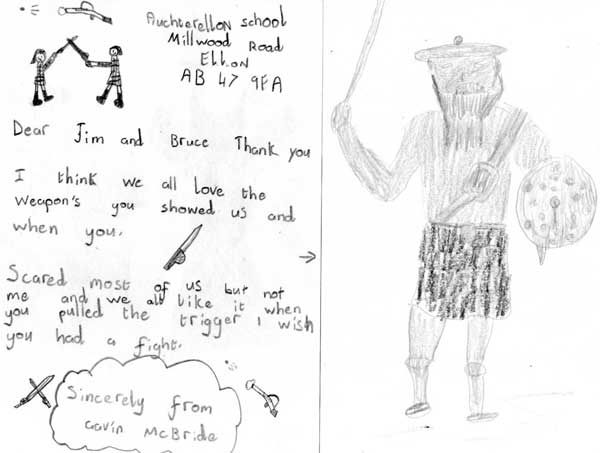 Auchterellon school
Millwood Road
Ellon
AB 47 9FA
Dear Jim and Bruce Thank you
I think we all love the
weapon's you showed us and
when you.
Scared most of us but not
me and we all like it when
you pulled the trigger I wish
you had a fight.
Sincerely from
Gavin McBride